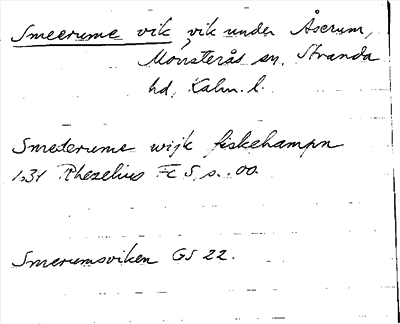 Smeerume vik, vik under Åserum,
Mönsterås sn, Stranda
hd, Kalm. l.
Smeterume wijk fiskehampn
Rhezelius Fc 5, s.
Smerumsviken GS 22.